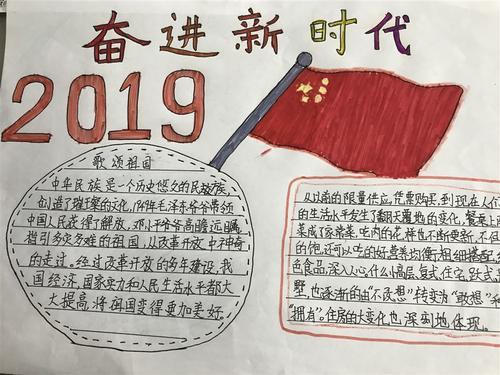 奋进新时代
2019
歌颂祖国
中华民族是一个历史悠久的民族
创造了璀璨的文化,1949年毛泽东爷爷带领
中国人民获得了解放,邓小平爷爷高瞻远瞩
指引多灾多难的祖国,从改革开放中神奇
的走过。经过改革开放的多年建设,我
国经济,国家实力和人民生活水平都大
大提高,将祖国变得更加美好。
从以前的限量供应,凭票购买,到现在人们
的生活水平发生了翻天覆地的变化,餐桌上
菜成了家常菜,吃肉的花样也不断更新,不
的饱,还可以吃的好,营养均衡,粗细搭配,
色食品深入人心,什么小高层,复式住宅,跃式,
墅,也逐渐的由"不敢想"转变为"敢想"和
"拥有"。住房的大变化也深刻地体现。